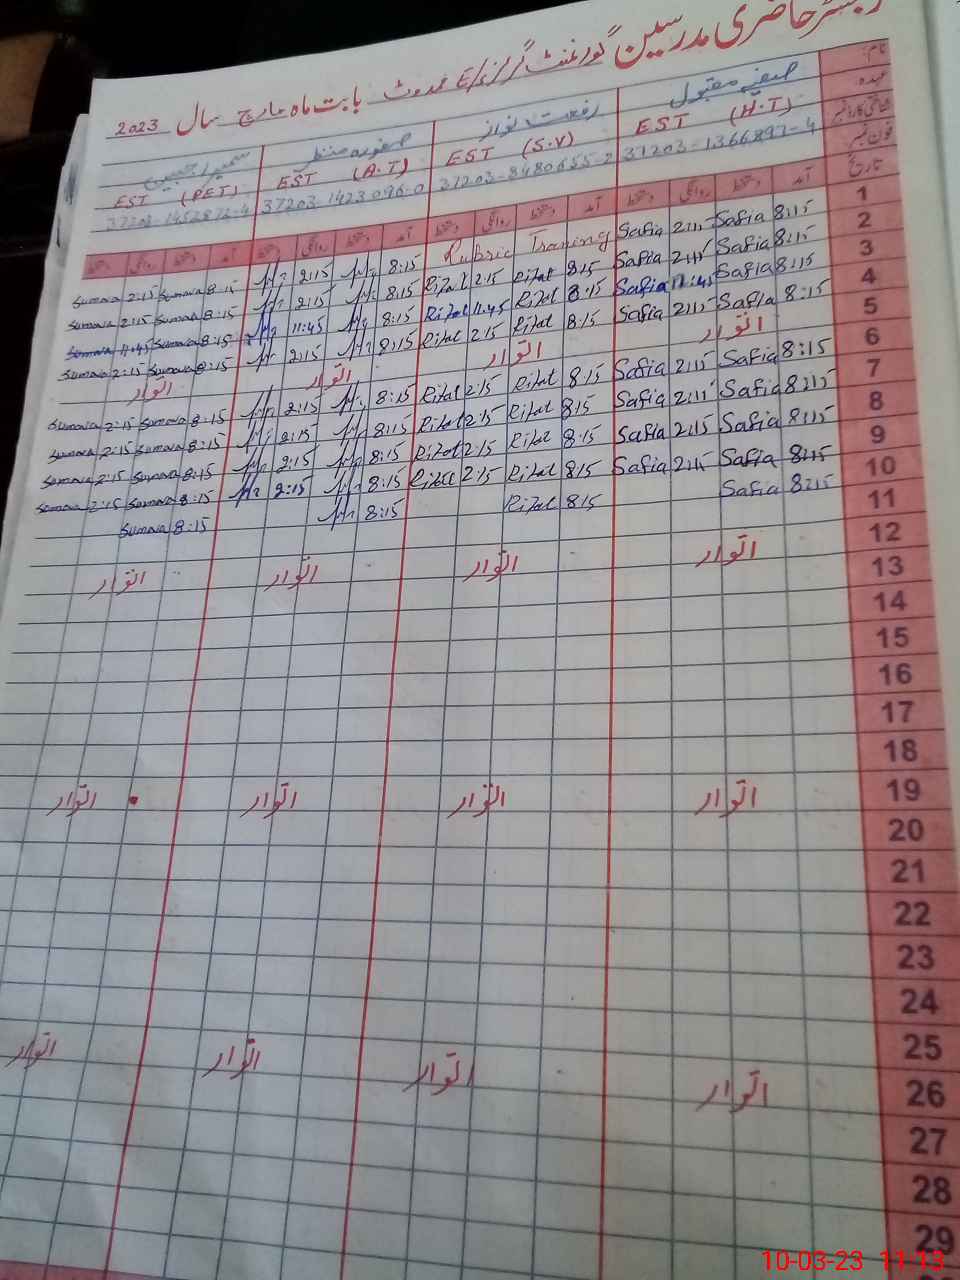 رجسٹر حاضری مدرسین گورنمنٹ گرلز E/S ممدوٹ بابت ماہ مارچ سال 2023
نام: صفیہ مقبول رفعت نواز صفورہ منظر سمیرا جبین
عہدہ EST (H.T) EST (S.V) EST (A.T) EST (PET)
شناختی کارڈ نمبر 37203-1366897-4 37203-8480655-2 37203-1423096-0
فون نمبر
تاریخ آمد دستخط روانگی دستخط آمد دستخط روانگی دستخط آمد دستخط روانگی دستخط آمد دستخط روانگی دستخط
1 8:15 Safia 2:15 Safia Rubric Training 8:15 2:15 8:15 Sumaira 2:15 Sumaira
2 8:15 Safia 2:15 Safia 8:15 Rifat 2:15 Rifat 8:15 2:15 8:15 Sumaira 2:15 Sumaira
3 8:15 Safia 11:45 Safia 8:15 Rifat 11:45 Rifat 8:15 11:45 8:15 Sumaira 11:45 Sumaira
4 8:15 Safia 2:15 Safia 8:15 Rifat 2:15 Rifat 8:15 2:15 8:15 Sumaira 2:15 Sumaira
5 اتوار اتوار اتوار اتوار
6 8:15 Safia 2:15 Safia 8:15 Rifat 2:15 Rifat 8:15 2:15 8:15 Sumaira 2:15 Sumaira
7 8:15 Safia 2:15 Safia 8:15 Rifat 2:15 Rifat 8:15 2:15 8:15 Sumaira 2:15 Sumaira
8 8:15 Safia 2:15 Safia 8:15 Rifat 2:15 Rifat 8:15 2:15 8:15 Sumaira 2:15 Sumaira
9 8:15 Safia 2:15 Safia 8:15 Rifat 2:15 Rifat 8:15 2:15 8:15 Sumaira 2:15 Sumaira
10 8:15 Safia 8:15 Rifat 8:15 8:15 Sumaira
11
12 اتوار اتوار اتوار اتوار
13
14
15
16
17
18
19 اتوار اتوار اتوار اتوار
20
21
22
23
24
25
26 اتوار اتوار اتوار اتوار
27
28
29
10-03-23 11-13